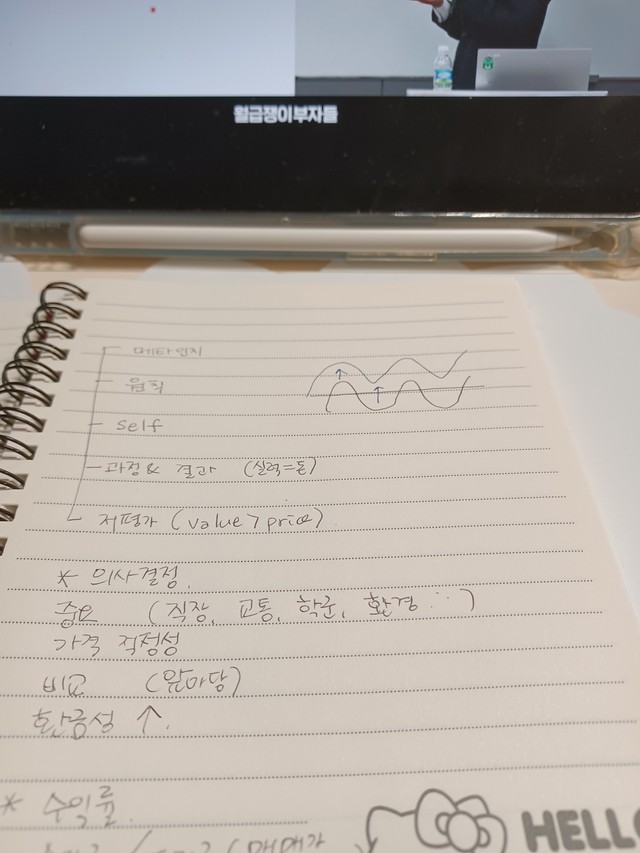 월급쟁이부자들
메타인지
원칙
self
과정 & 결과 (실력=돈)
저평가 (value > price)
* 의사결정.
(직장, 교통, 학군, 환경 ...)
가격 적정성
비교 (앞마당)
환금성 ↑.
* 수익률.
(매매가
HELLO